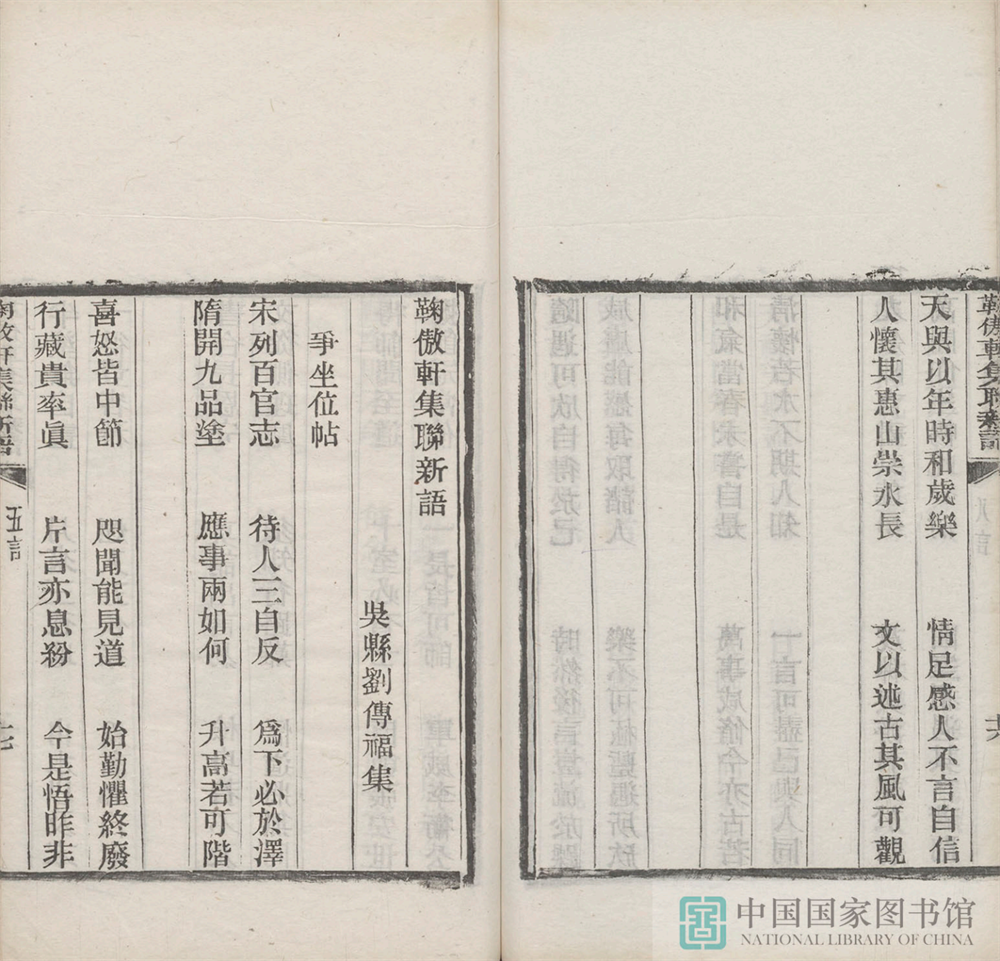 鞠傲軒集聯新語
八言
十八
天與以年時和歲樂　情足感人不言自信
人懷其惠山崇水長　文以述古其風可觀
鞠傲軒集聯新語
吳縣劉傳福集
爭坐位帖
宋列百官志　待人三自反　爲下必於澤
隋開九品塗　應事兩如何　升高若可階
喜怒皆中節　咫聞能見道　始勤懼終廢
行藏貴率眞　片言亦息紛　今是悟昨非
五言
中国国家图书馆
NATIONAL LIBRARY OF CHINA